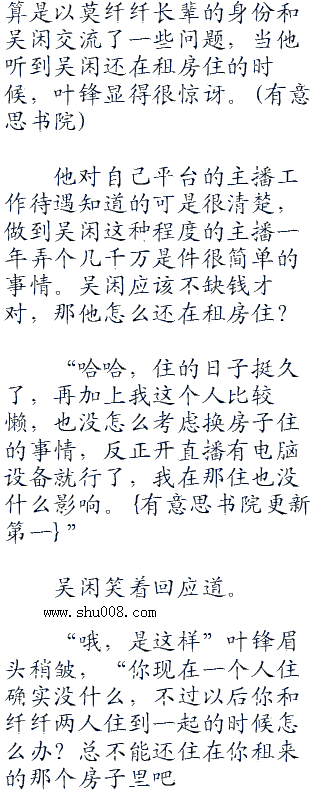 算是以莫纤纤长辈的身份和
吴闲交流了一些问题，当他
听到吴闲还在租房住的时
候，叶锋显得很惊讶。(有意
思书院)
他对自己平台的主播工
作待遇知道的可是很清楚，
做到吴闲这种程度的主播一
年弄个几千万是件很简单的
事情。吴闲应该不缺钱才
对，那他怎么还在租房住？
“哈哈，住的日子挺久
了，再加上我这个人比较
懒，也没怎么考虑换房子住
的事情，反正开直播有电脑
设备就行了，我在那住也没
什么影响。{有意思书院更新
第一}”
吴闲笑着回应道。
www.shu008.com
“哦，是这样”叶锋眉
头稍皱，“你现在一个人住
确实没什么，不过以后你和
纤纤两人住到一起的时候怎
么办？总不能还住在你租来
的那个房子里吧